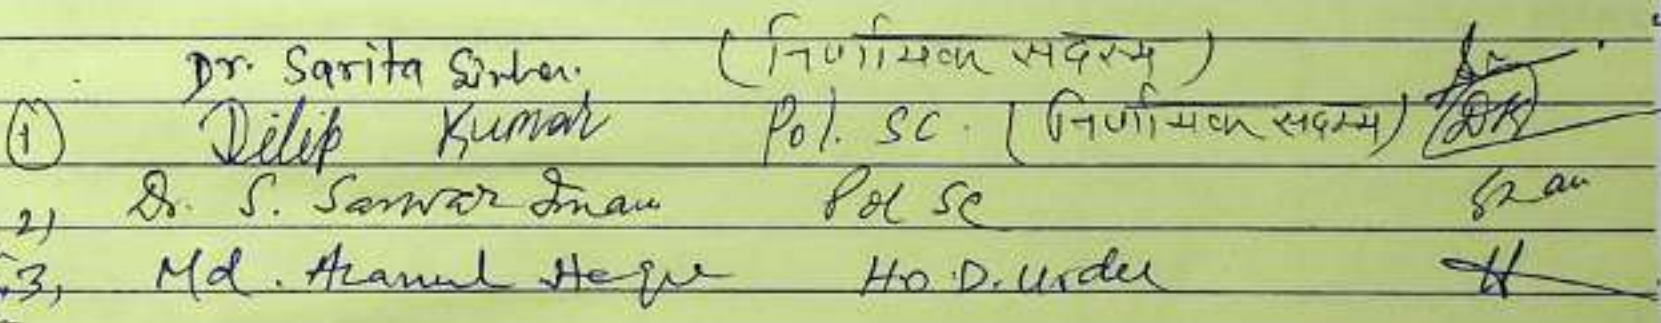 Dr. Sarita Sinha. (निर्णायक सदस्य)
1 Dilip Kumar Pol. SC. (निर्णायक सदस्य) DK
2) Dr. S. Sarwar Imam Pol Sc
3, Md. Haque H.O.D. Urdu